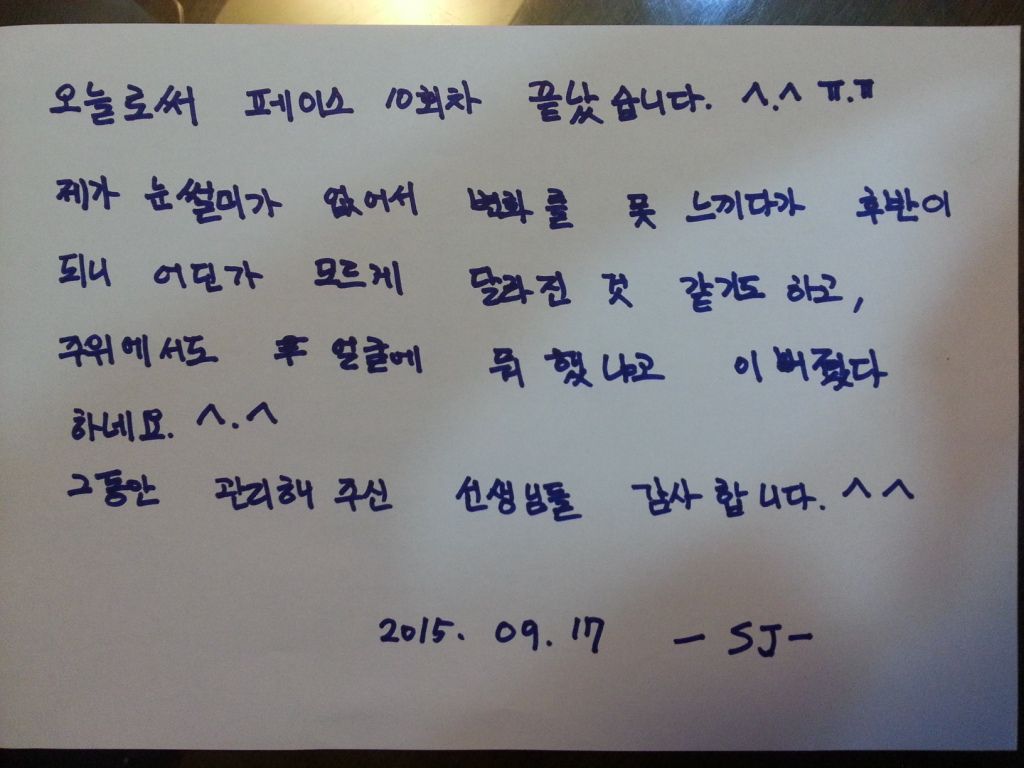 오늘로써 페이스 10회차 끝났습니다. ^.^ ㅠ.ㅠ
제가 눈썰미가 없어서 변화를 못 느끼다가 후반이
되니 어딘가 모르게 달라진 것 같기도 하고,
주위에서도 얼굴에 뭐 했냐고 이뻐졌다
하네요. ^.^
그동안 관리해 주신 선생님들 감사합니다. ^^
2015. 09. 17 - SJ -